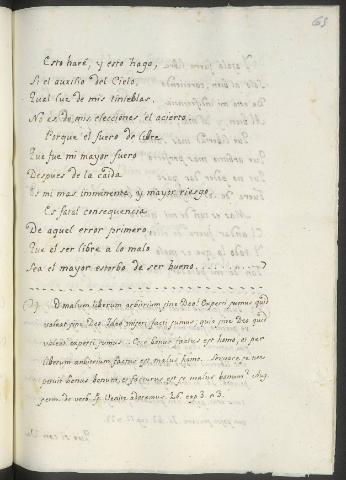 65
Esto haré, y esto hago,
Si el auxilio del Cielo,
Qual luz de mis tinieblas,
No es de mis elecciones el acierto.
Porque el fuero de libre
Que fue mi mayor fuero
Despues de la caida
Es mi mas imminente, y mayor riesgo.
Es fatal consequencia
De aquel error primero,
Que el ser libre a lo malo
Sea el mayor estorbo de ser bueno.
O malum liberum arbitrium sine Deo! Experti sumus quid
valeat sine Deo. Ideo miseri facti sumus, quia sine Deo quid
valeat experti sumus. Ecce bonus factus est homo, et per
liberum arbitrium factus est malus homo.
perunt bonus bonum, et facturus est se malus bonum? Aug.
serm. de verb. Ap. Venite adoremus. 26. cap. 3. n. 3.